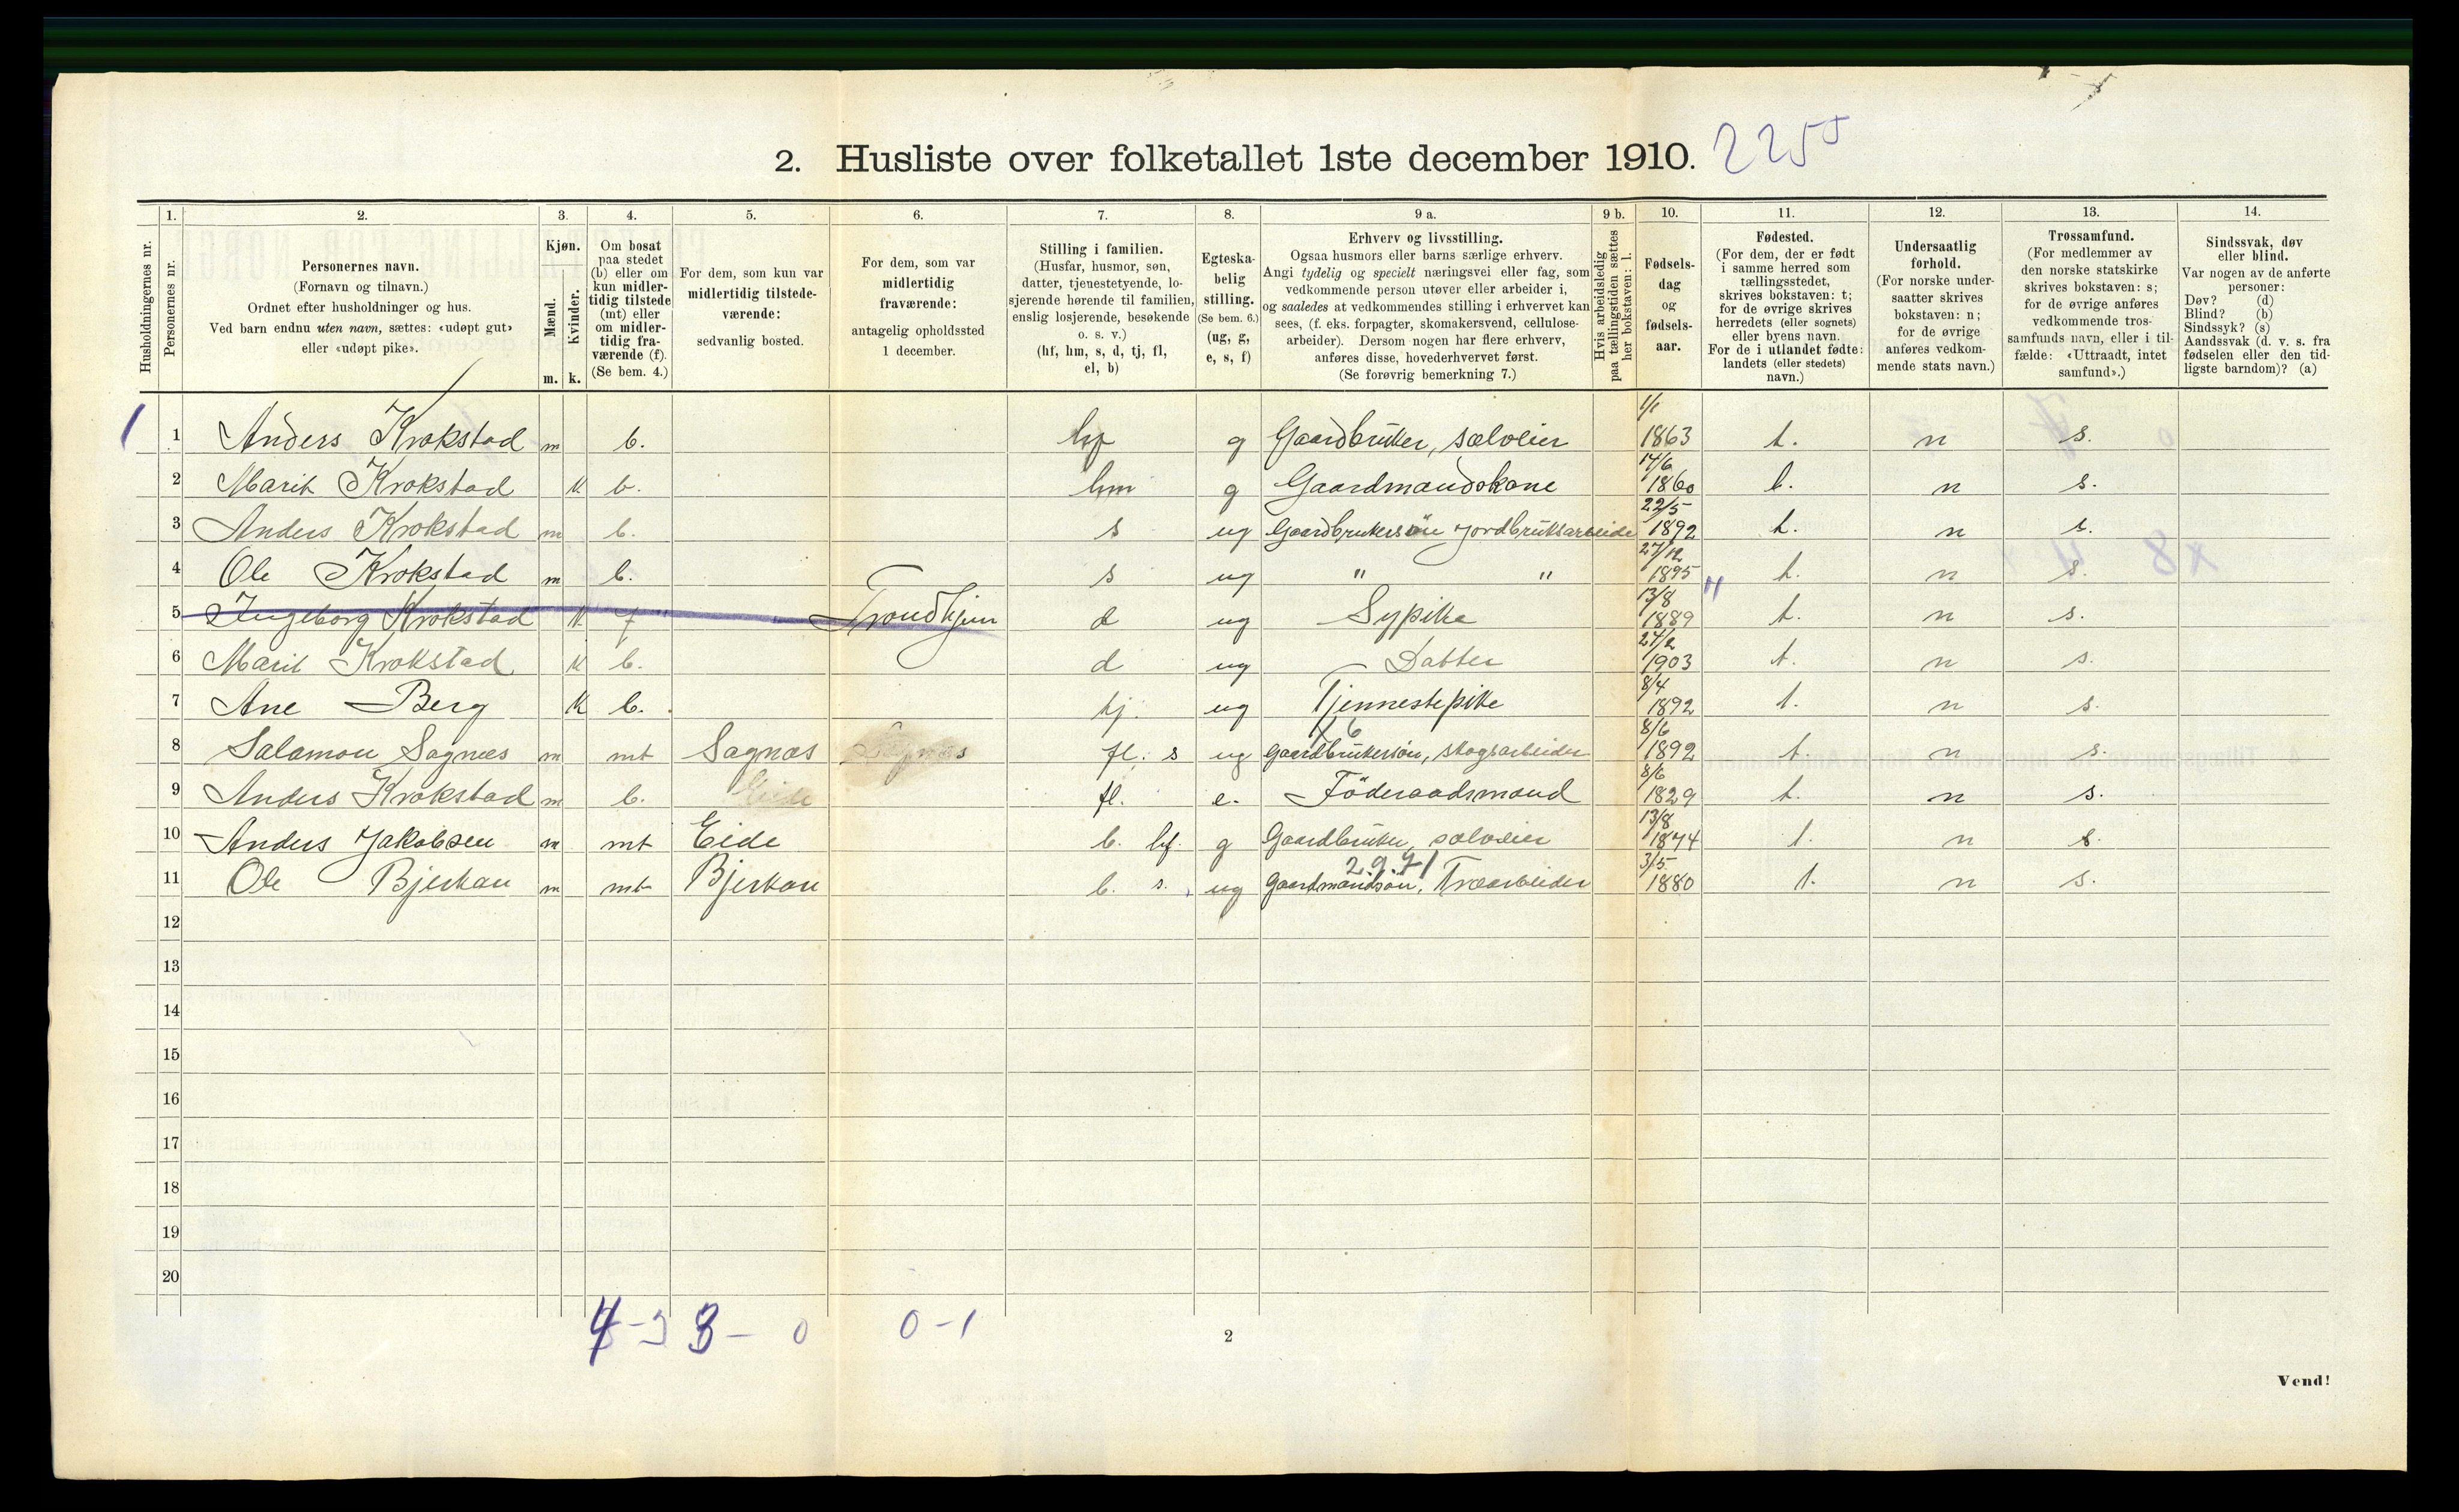 2255
2. Husliste over folketallet 1ste december 1910.
Husholdningernes nr.
1.
Personernes nr.
2.
Personernes navn.
(Fornavn og tilnavn.)
Ordnet efter husholdninger og hus.
Ved barn endnu uten navn, sættes: «udøpt gut»
eller «udøpt pike».
3.
Kjøn.
Mænd.
Kvinder.
m. k.
4.
Om bosat
paa stedet
(b) eller om
kun midler-
tidig tilstede
(mt) eller
om midler-
tidig fra-
værende (f).
(Se bem. 4.)
5.
For dem, som kun var
midlertidig tilstede-
værende:
sedvanlig bosted.
6.
For dem, som var
midlertidig
fraværende:
antagelig opholdssted
1 december.
7.
Stilling i familien.
(Husfar, husmor, søn,
datter, tjenestetyende, lo-
sjerende hørende til familien,
enslig losjerende, besøkende
o. s. v.)
(hf, hm, s, d, tj, fl,
el, b)
8.
Egteska-
belig
stilling.
(Se bem. 6.)
(ug, g,
e, s, f)
9 a.
Erhverv og livsstilling.
Ogsaa husmors eller barns særlige erhverv.
Angi tydelig og specielt næringsvei eller fag, som
vedkommende person utøver eller arbeider i,
og saaledes at vedkommendes stilling i erhvervet kan
sees, (f. eks. forpagter, skomakersvend, cellulose-
arbeider). Dersom nogen har flere erhverv,
anføres disse, hovederhvervet først.
(Se forøvrig bemerkning 7.)
9 b.
Hvis arbeidsledig
paa tællingstiden sættes
her bokstaven: l.
10.
Fødsels-
dag
og
fødsels-
aar.
11.
Fødested.
(For dem, der er født
i samme herred som
tællingsstedet,
skrives bokstaven: t;
for de øvrige skrives
herredets (eller sognets)
eller byens navn.
For de i utlandet fødte:
landets (eller stedets)
navn.)
12.
Undersaatlig
forhold.
(For norske under-
saatter skrives
bokstaven: n;
for de øvrige
anføres vedkom-
mende stats navn.)
13.
Trossamfund.
(For medlemmer av
den norske statskirke
skrives bokstaven: s;
for de øvrige anføres
vedkommende tros-
samfunds navn, eller i til-
fælde: «Uttraadt, intet
samfund».)
14.
Sindssvak, døv
eller blind.
Var nogen av de anførte
personer:
Døv? (d)
Blind? (b)
Sindssyk? (s)
Aandssvak (d. v. s. fra
fødselen eller den tid-
ligste barndom)? (a)
1 1 Anders Krokstad m b. hf g Gaardbruker, sælveier 1/1 1863 t. n s.
2 Marit Krokstad k b. hm g Gaardmandskone 14/6 1860 t. n s.
3 Anders Krokstad m b. s ug Gaardbrukersön Jordbruksarbeide 22/5 1892 t. n s.
4 Ole Krokstad m b. s ug " " 27/12 1895 t. n s.
5 Ingeborg Krokstad k f Trondhjem d ug Sypike 13/8 1889 t. n s.
6 Marit Krokstad k b. d ug Datter 24/2 1903 t. n s.
7 Ane Berg k b. tj. ug Tjennestepike 8/4 1892 t. n s.
8 Salamon Sagnæs m mt Sagnæs fl. s ug Gaardbrukersön, skogsarbeider 8/6 1892 t. n s.
9 Anders Krokstad m b. fl. e. Föderaadsmand 8/6 1829 t. n s.
10 Anders Jakobsen m mt Eide b. hf. g Gaardbruker, sælveier 13/8 1874 t. n s.
11 Ole Bjerkan m mt Bjerkan b. s. ug Gaardmandsøn, Træarbeider 3/5 1880 t. n s.
12
13
14
15
16
17
18
19
20
0 - 1
2
Vend!